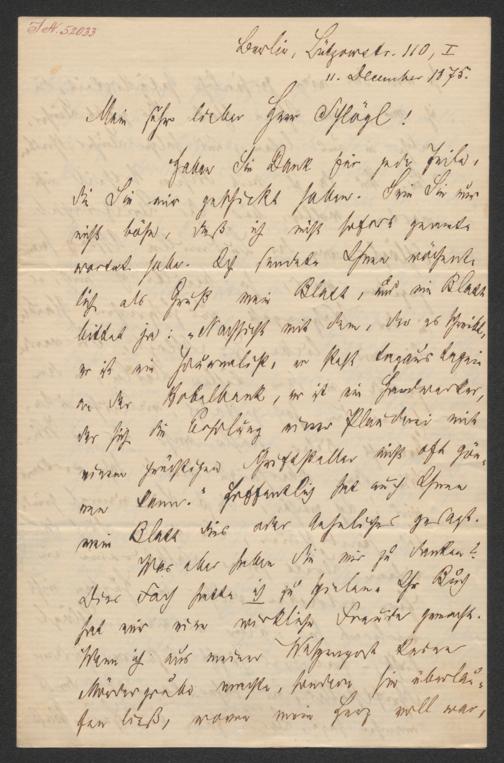 I.N. 52033
Berlin, Lützowstr. 110, I
11. December 1875.
Mein sehr lieber Herr Schlögl!
Haben Sie Dank für jede Zeile,
die Sie mir geschickt haben. Sein Sie mir
nicht böse, daß ich nicht sofort geant-
wortet habe. Ich sendete Ihnen wöchent-
lich als Gruß mein Blatt, und ein Blatt
bittet ja: „Nachsicht mit dem, der es schreibt,
er ist ein Journalist, er steht tagaus tagein
an der Hobelbank, er ist ein Handwerker,
der sich die Erholung einer Plauderei mit
einem prächtigen Schriftsteller nicht oft gön-
nen kann." Hoffentlich hat auch Ihnen
mein Blatt dies oder Aehnliches gesagt.
Was aber haben Sie mir zu danken?
Dies Fach hatte ich zu spielen. Ihr Buch
hat mir eine wirkliche Freude gemacht.
Wenn ich aus meiner Wespenpost keine
Mördergrube machte, sondern sie überlau-
fen ließ, wovon mein Herz voll war,